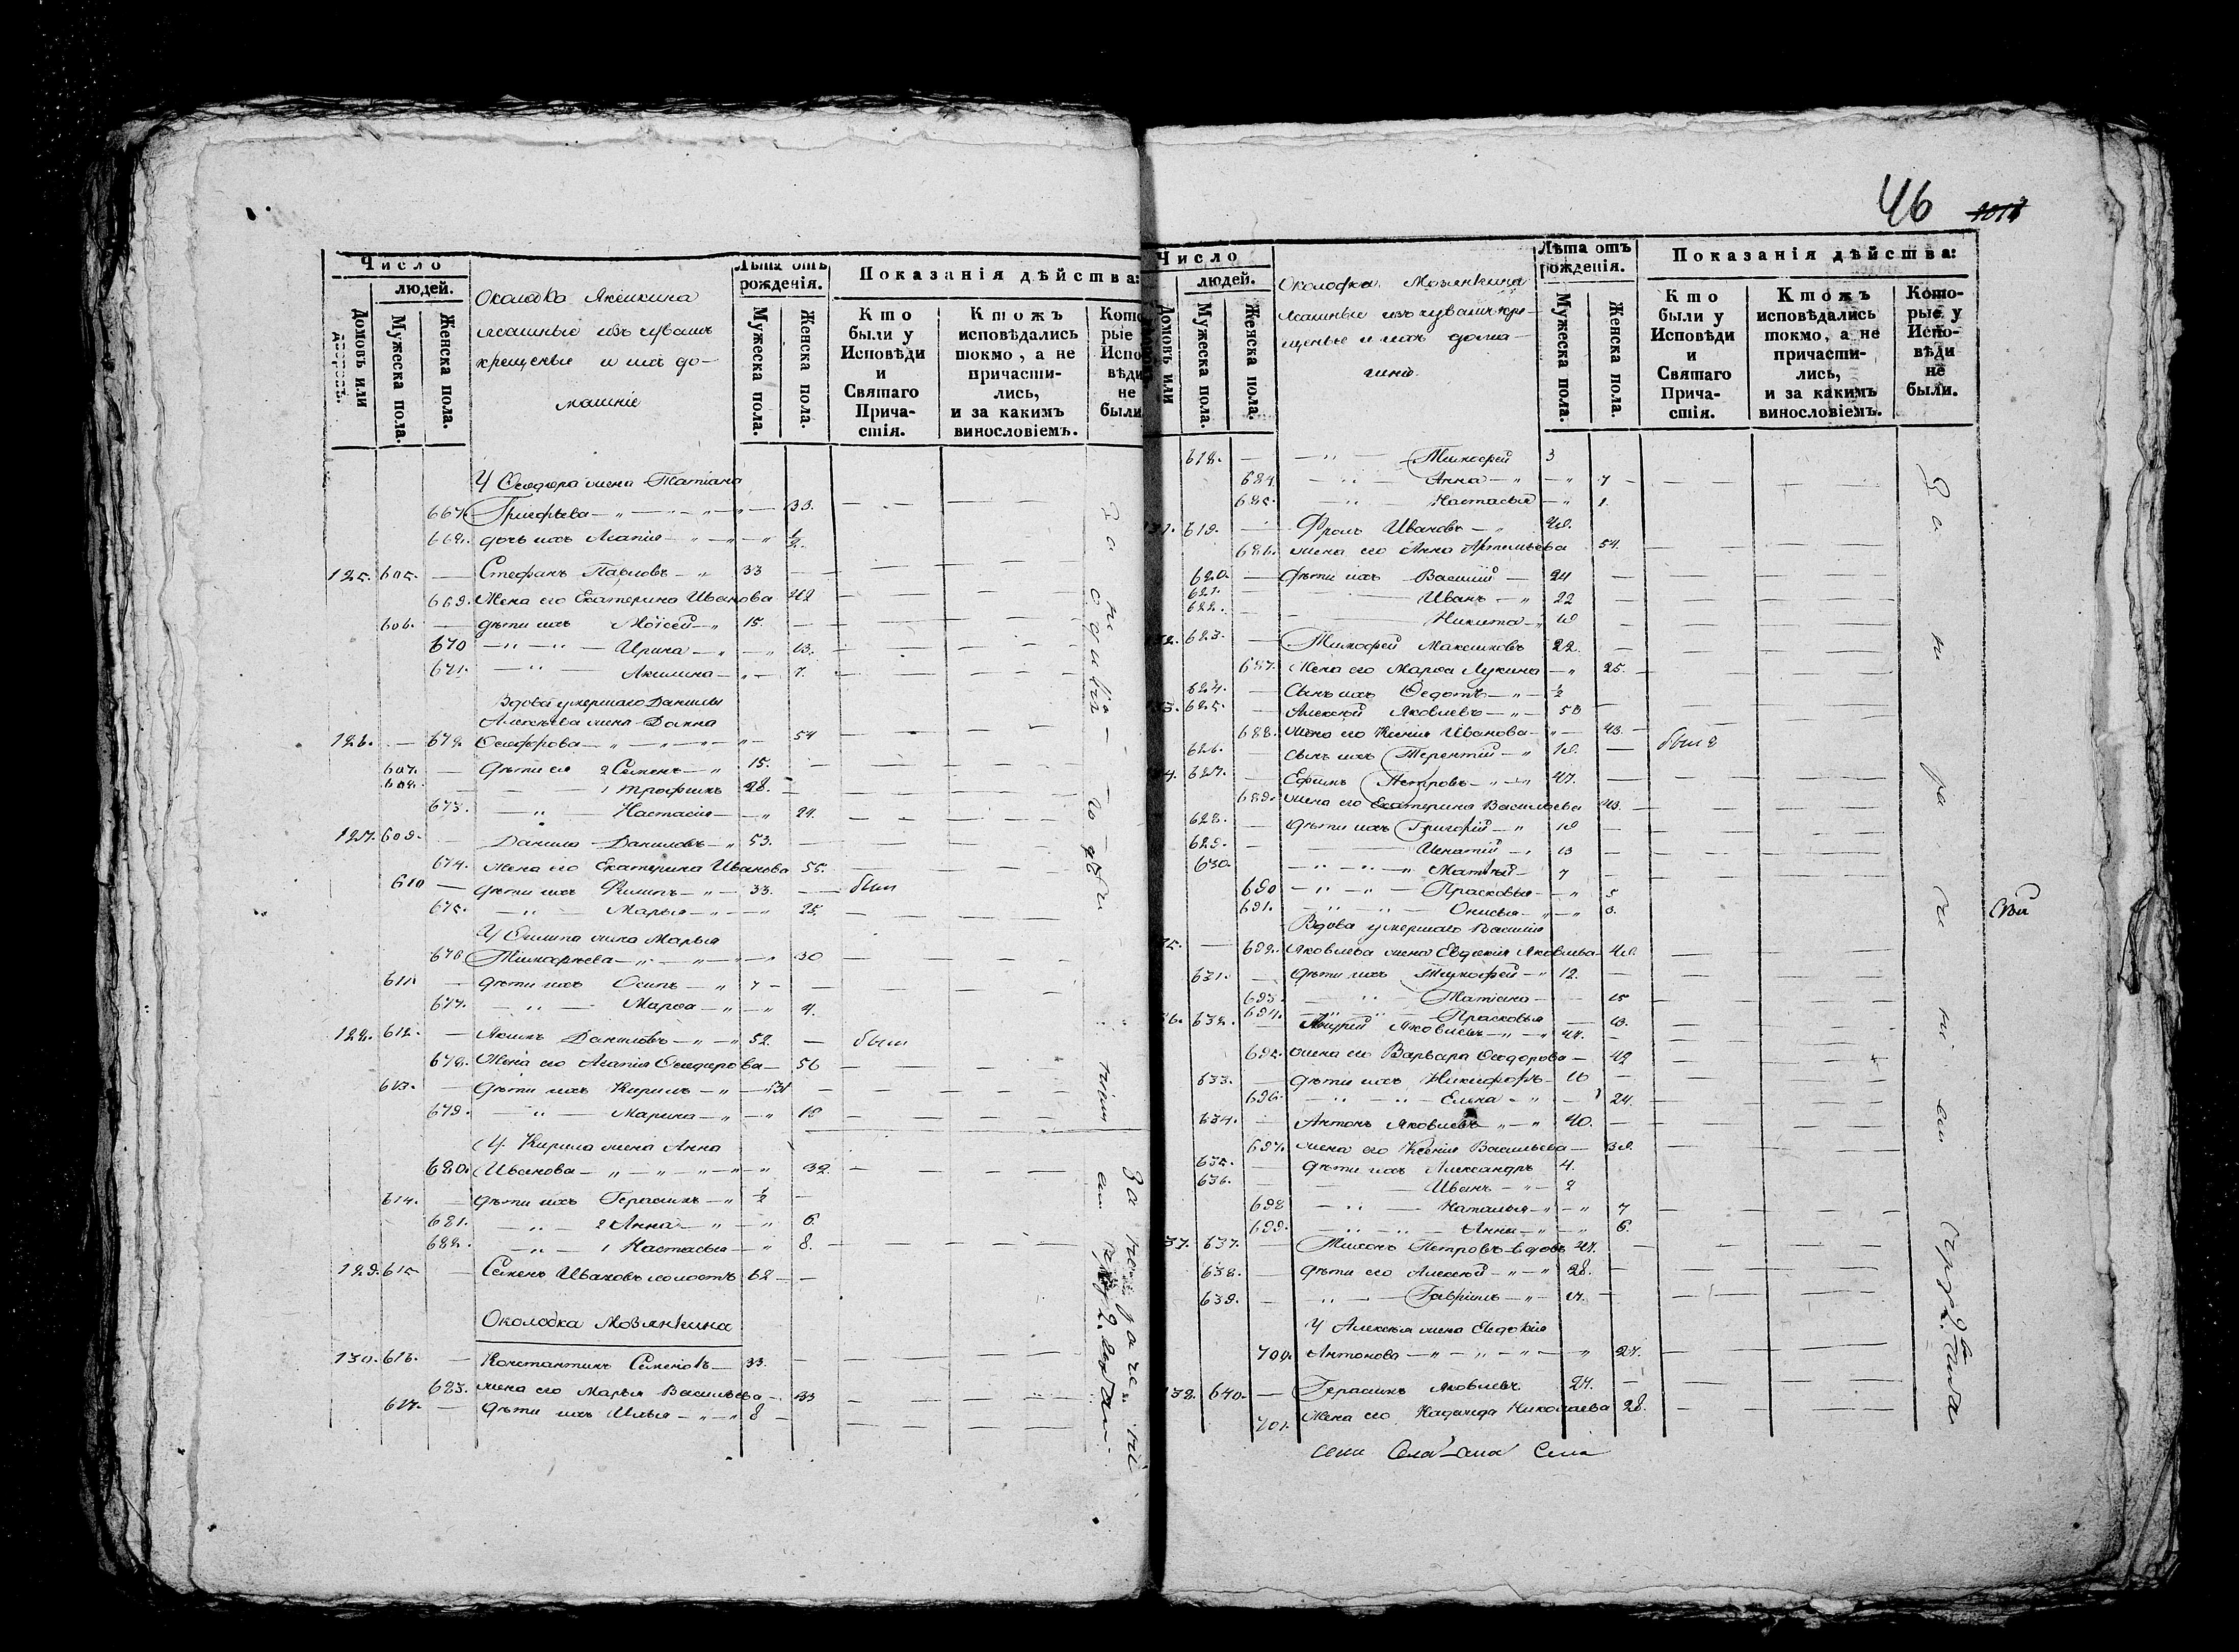 46
Число
людей.
Домовъ или дворовъ.
Мужеска пола.
Женска пола.
Околодка Якейкина
ясашные изъ чувашъ
крещеные и ихъ до-
машніе
Лѣта отъ
рожденія.
Мужеска пола.
Женска пола.
Показанія дѣйства:
Кто
были у
Исповѣди
и
Святаго
Прича-
стія.
Ктожъ
исповѣдались
токмо, а не
причасти-
лись,
и за какимъ
винословіемъ.
Кото
рые
Испо
вѣди
не
были
У Ѳеодора жена Татіана
667. Григорьева 33.
668. дочь ихъ Агапія ½.
125. 605. Стефанъ Павловъ 33
669. Жена его Екатерина Иванова 42
606. дѣти ихъ Моѵсей 15.
670 Ирина 13.
671. Акилина 7.
Вдова умершаго Данилы
Алексѣева жена Домна
126. 672. Ѳеодорова 54
607. дѣти ея 2 Семенъ 15.
608. 1 Трофимъ 28.
673. Настасія 24.
127. 609. Данило Даниловъ 53.
674. Жена его Екатерина Иванова 55.
610 дѣти ихъ Филипъ 33. былъ
675. Марья 25.
У Филипа жена Марья
676 Тимофѣева 30
611 дѣти ихъ Осипъ 7
677. Марѳа 4.
128. 612. Якимъ Даниловъ 52. былъ
678. Жена его Агапія Ѳеодорова 56
613. дѣти ихъ Кирилъ 31
679. Марина 18
У Кирила жена Анна
680. Иванова 32.
614. дѣти ихъ Герасимъ ½
681. 2 Анна 6.
682. 1 Настасья 8.
129. 615 Семенъ Ивановъ холостъ 62
Околодка Мозянкина
130. 616. Константинъ Семеновъ 33.
683. жена его Марья Васильева 33
617. дѣти ихъ Илья 8
Число
людей.
Домовъ или
Мужеска пола.
Женска пола.
Околодка Мозянкина
ясашные изъ чувашъ кре-
щеные и ихъ дома-
шніе.
Лѣта отъ
рожденія.
Мужеска пола.
Женска пола.
Показанія дѣйства:
Кто
были у
Исповѣди
и
Святаго
Прича-
стія.
Ктожъ
исповѣдались
токмо, а не
причасти-
лись,
и за какимъ
винословіемъ.
Кото-
рые у
Испо-
вѣди
не
были.
618. Тимофей 3
684 Анна 7
685. Настасья 1.
131. 619. Фролъ Ивановъ 48.
686. жена его Анна Артемьева 54.
620. дѣти ихъ Василій 24
621. Иванъ 22
622. Никита 18
132. 623. Тимофей Максимовъ 22.
687. Жена его Марѳа Лукина 25.
624. Сынъ ихъ Ѳедотъ ½
133. 625. Алексѣй Яковлевъ 50
688. жена его Ксенія Иванова 43. была
626. сынъ ихъ Терентій 18.
134. 627. Ефимъ Петровъ 47.
689. жена его Екатерина Васильева 43.
628. дѣти ихъ Григорій 18
629. Игнатій 13
630. Матвѣй 7
690 Прасковья 5
691. Онисья 3.
Вдова умершаго Василія
135. 692. Яковлева жена Евдокия Яковлева 48.
631. дѣти ихъ Тимофей 12.
693. Татіана 15
694. Прасковья 13.
136. 632. Андрей Яковлевъ 44.
695. жена его Варвара Ѳеодорова 42
633. дѣти ихъ Никифоръ 16
696. Елена 24.
634. Антонъ Яковлевъ 40.
697. жена его Ксенія Васильева 38.
635. дѣти ихъ Александръ 4.
636. Иванъ 2
698 Наталья 7
699. Анна 6.
137. 637. Тихонъ Петровъ вдовъ 47.
638. дѣти его Алексѣй 28.
639. Гавріилъ 17.
У Алексѣя жена Евдокія
700. Антонова 27.
138. 640. Герасимъ Яковлевъ 27.
701. Жена его Надежда Николаева 28.